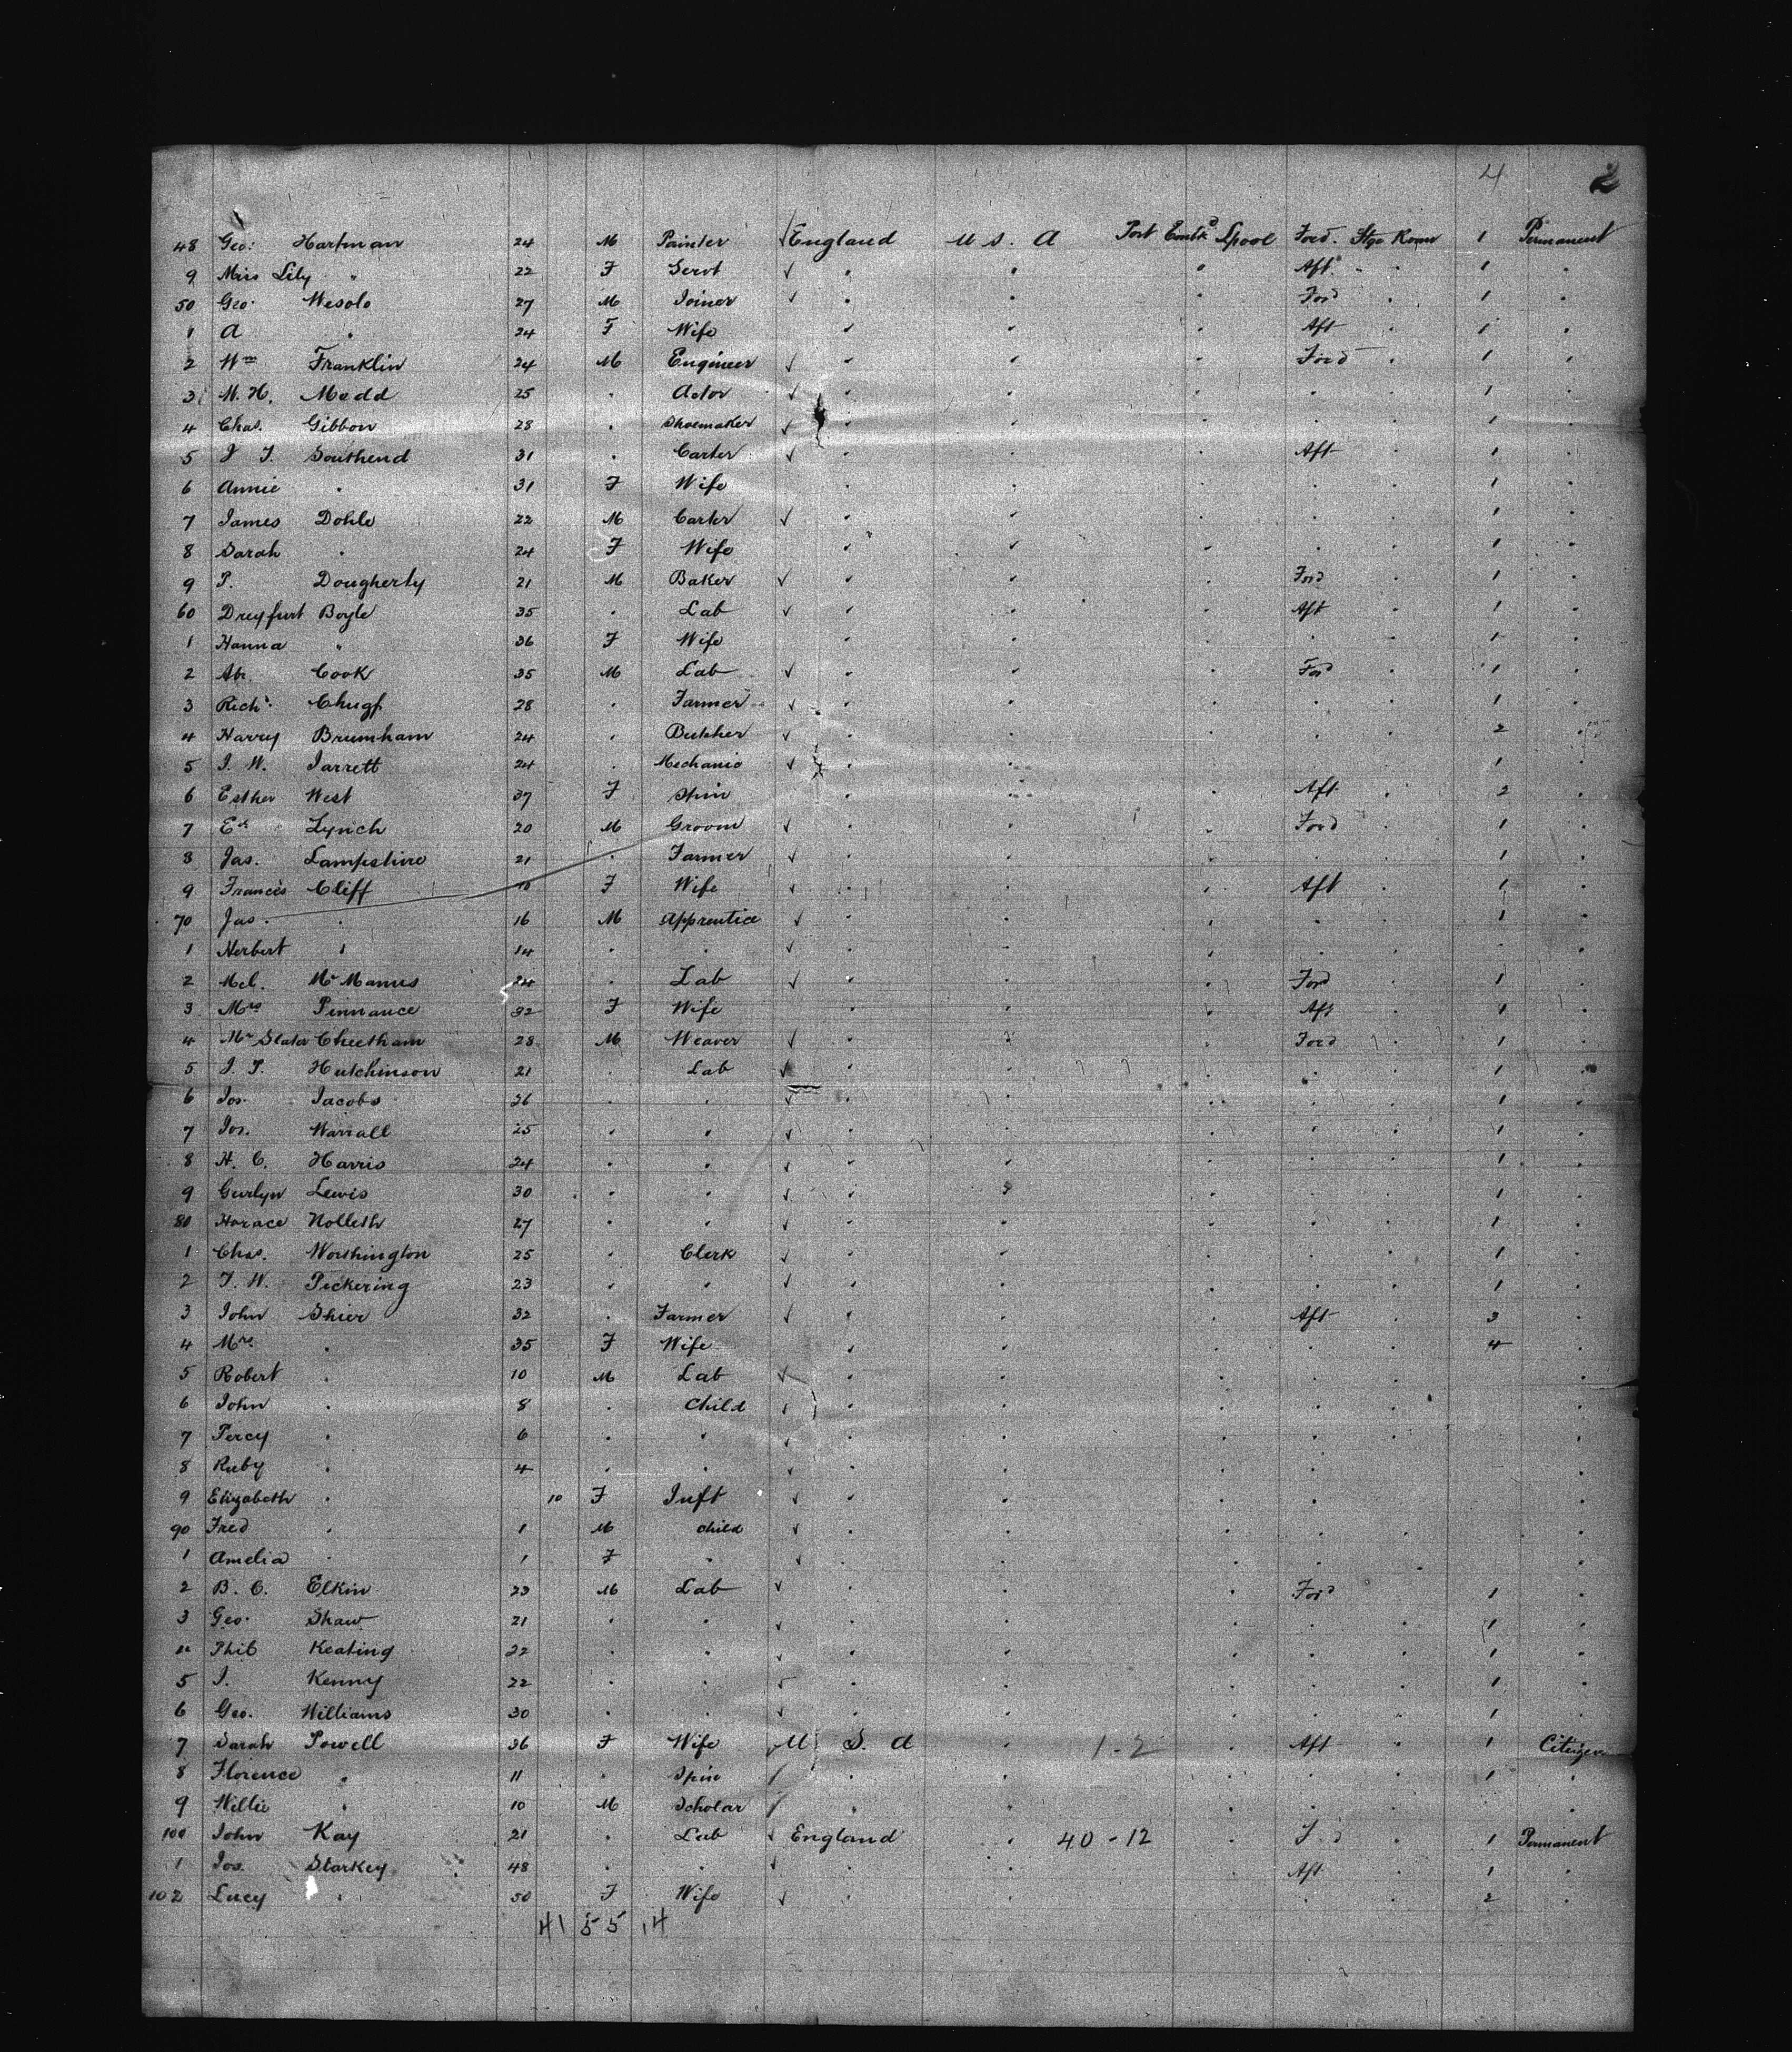 4 2
48 Geo: Hartman 24 M Painter England U S. A Port Embkd Lpool Ford. Stge Room 1 Permanent
9 Miss Lily " 22 F Servt " " " Aft. " " 1 "
50 Geo. Wesolo 27 M Joiner " " " Ford " 1 "
1 A " 24 F Wife " " " Aft " 1 "
2 Wm Franklin 24 M Engineer " " " Ford " 1 "
3 M. H. Madd 25 " Actor " " " " " 1 "
4 Chas. Gibbon 28 " Shoemaker " " " " " 1 "
5 J T. Southend 31 " Carter " " " Aft " 1 "
6 Annie " 31 F Wife " " " " " 1 "
7 James Dohle 22 M Carter " " " " " 1 "
8 Sarah " 24 F Wife " " " " " 1 "
9 P. Dougherty 21 M Baker " " " Ford " 1 "
60 Dreyfurt Boyle 35 " Lab " " " Aft " 1 "
1 Hanna " 36 F Wife " " " " " 1 "
2 Ab. Cook 35 M Lab " " " Ford " 1 "
3 Richd. Chugf 28 " Farmer " " " " " 1 "
4 Harry Brumham 24 " Butcher " " " " " 2 "
5 J. W. Jarrett 24 " Mechanic " " " " " 1 "
6 Esther West 37 F Spin " " " Aft " 2 "
7 Ed Lynch 20 M Groom " " " Ford " 1 "
8 Jas. Lampshire 21 " Farmer " " " " " 1 "
9 Francis Cliff F Wife " " " Aft " 1 "
70 Jas. " 16 M Apprentice " " " " " 1 "
1 Herbert " 14 " " " " " " " "
2 Mcl. McManus 24 " Lab " " " Ford " 1 "
3 Mrs Pinnance 32 F Wife " " " Aft " 1 "
4 Mr Slater Cheetham 28 M Weaver " " " Ford " 1 "
5 J. P. Hutchinson 21 " Lab " " " " " 1 "
6 Jos. Jacobs 26 " " " " " " " 1 "
7 Jos. Warrall 25 " " " " " " " 1 "
8 H. C. Harris 24 " " " " " " " 1 "
9 Gurlyn Lewis 30 " " " " " " " 1 "
80 Horace Holleth 27 " " " " " " " 1 "
1 Chas. Worthington 25 " Clerk " " " " " 1 "
2 T. W. Pickering 23 " " " " " " " 1 "
3 John Shier 32 " Farmer " " " Aft " 3 "
4 Mrs " 35 F Wife " " " " " 4 "
5 Robert " 10 M Lab " " " " " "
6 John " 8 " Child " " " " " "
7 Percy " 6 " " " " " " " "
8 Ruby " 4 " " " " " " " "
9 Elizabeth " 10 F Inft " " " " "
90 Fred " 1 M child " " " " "
1 Amelia " 1 F " " " " " "
2 B. C. Elkin 23 M Lab " " " Ford 1 "
3 Geo. Shaw 21 " " " " " " " 1 "
4 Phil Keating 22 " " " " " " " 1 "
5 J. Kenny 22 " " " " " " " 1 "
6 Geo. Williams 30 " " " " " " " 1 "
7 Sarah Powell 36 F Wife U S. A " 1-2 " Aft " 1 Citizen
8 Florence " 11 " Spin " " " " " 1 "
9 Willie " 10 M Scholar " " " " " "
100 John Kay 21 " Lab England " 40-12 " " 1 Permanent
1 Jos. Starkey 48 " " " " " Aft " 1 "
102 Lucy " 50 F Wife " " " " " 2 "
41 55 14